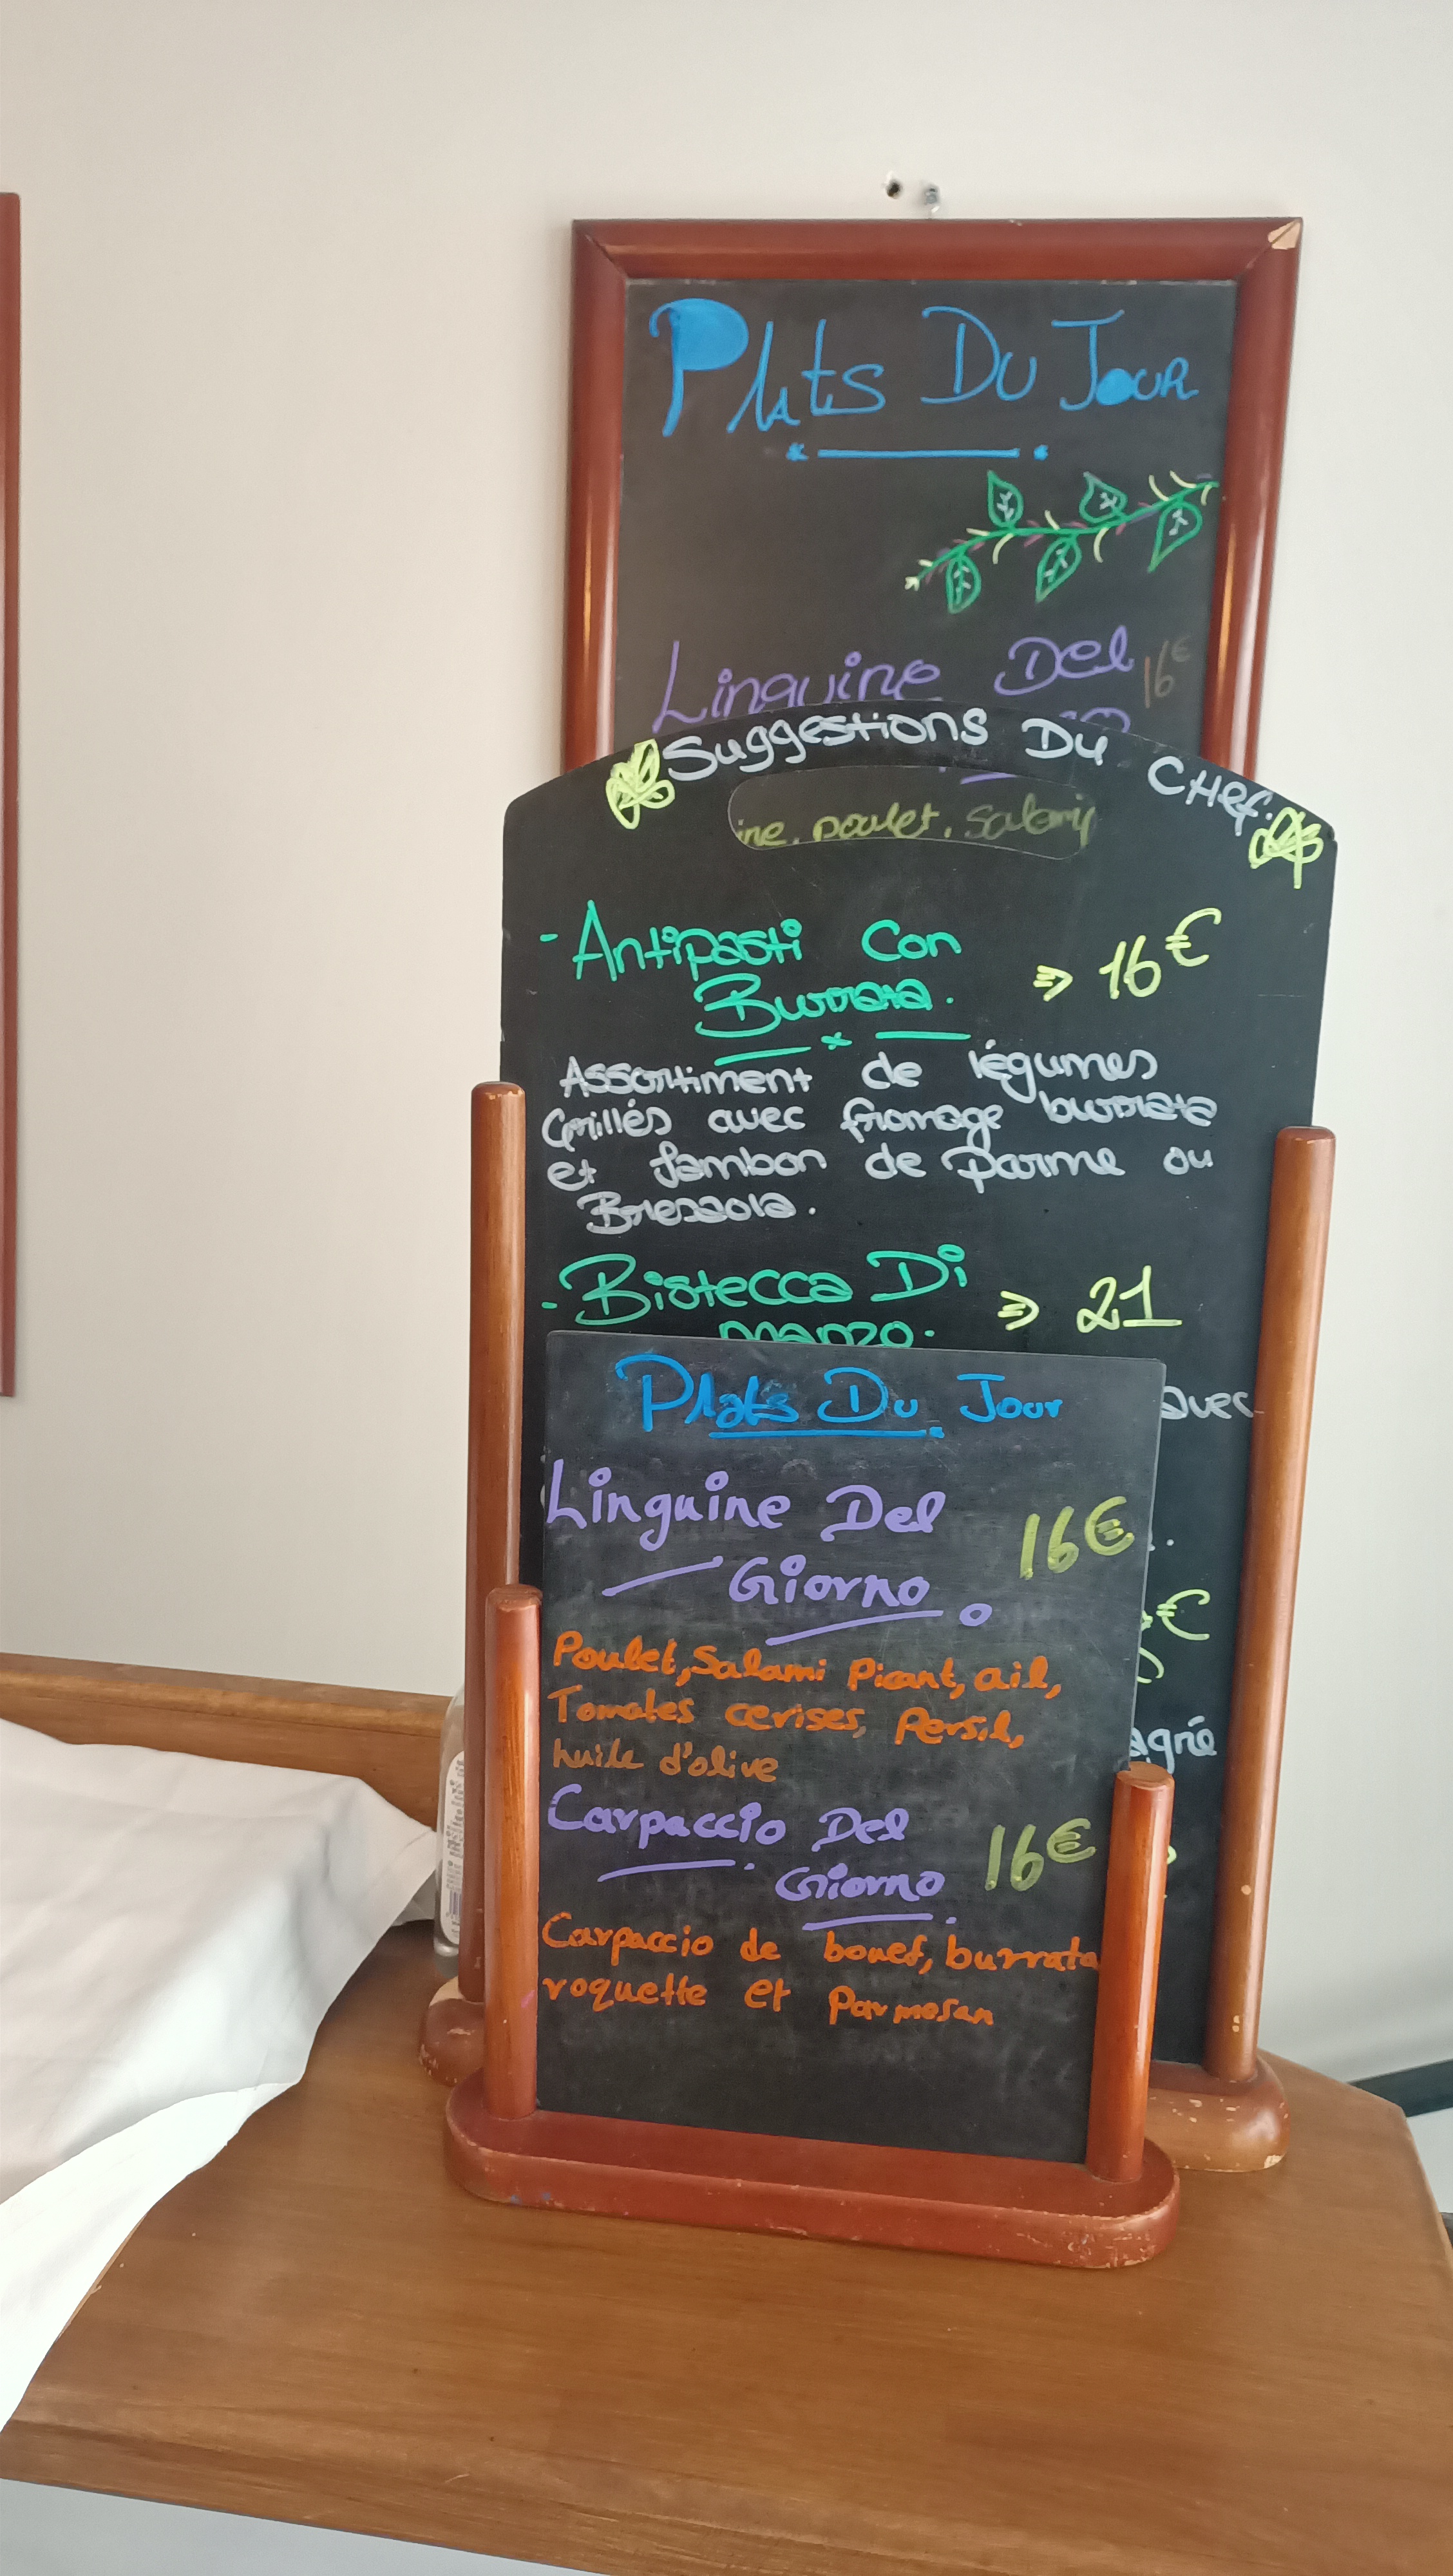 Plats Du Jour
Linguine Del 16€
Suggestions Du Chef.
poulet, Salami
- Antipasti Con
Burrata. ⇒ 16€
Assortiment de légumes
Grillés avec fromage burrata
et Jambon de parme ou
Bresaola.
- Bistecca Di ⇒ 21
manzo.
avec
€
Plats Du Jour
Linguine Del 16€
Giorno
Poulet, Salami Picant, ail,
Tomates cerises, Persil,
huile d'olive
Carpaccio Del 16€
Giorno
Carpaccio de bouef, burrata
roquette et Parmesan